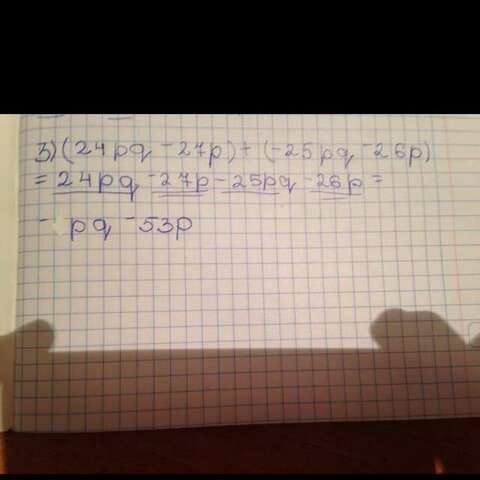 3) (24pq - 27p) + (-25pq - 26p)
= 24pq - 27p - 25pq - 26p =
- pq - 53p